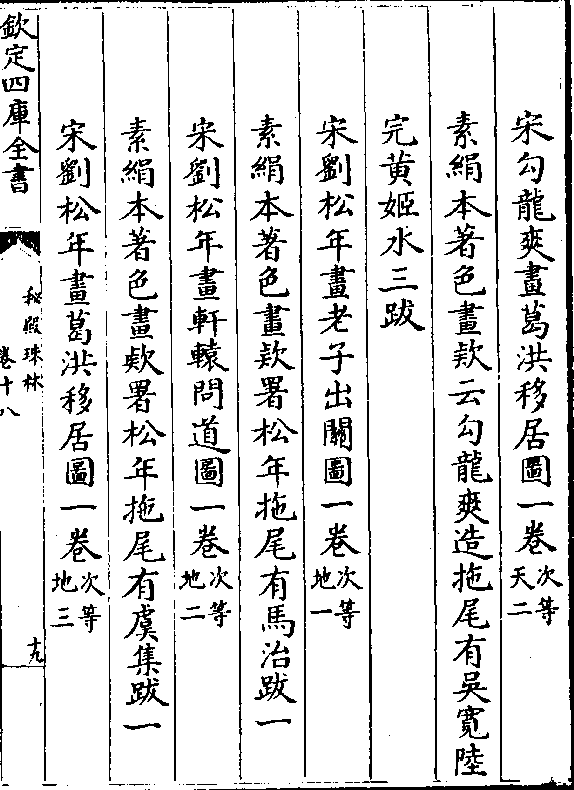 宋勾龍爽畫葛洪移居圖一卷次等天二
素絹本著色畫欵云勾龍爽造拖尾有吳寛陸
完黄姬水三跋
宋劉松年畫老子出關圖一卷次等地一
素絹本著色畫欵署松年拖尾有馬治跋一
宋劉松年畫軒轅問道圖一卷次等地二
素絹本著色畫欵署松年拖尾有虞集跋一
宋劉松年畫葛洪移居圖一卷次等地三
欽定四庫全書
秘殿珠林
卷十八
十九